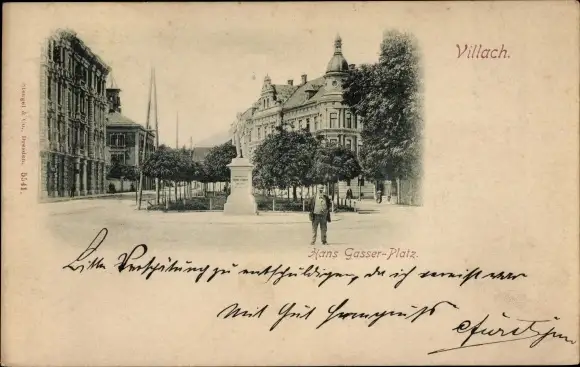 Villach.
Stengel & Co., Dresden. 5541.
Hans Gasser-Platz.
Bitte Verspätung zu entschuldigen, da ich verreist war
Mit Gut